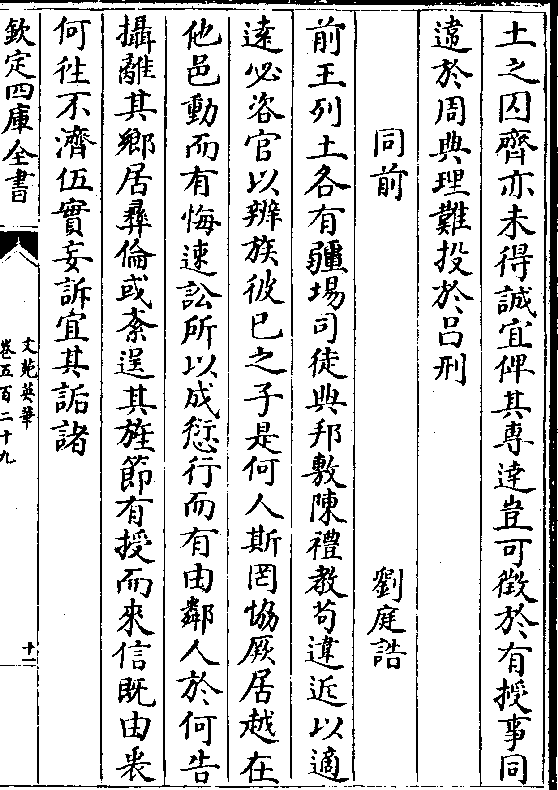 土之囚齊亦未得誠宜俾其專達豈可徵於有授事同
違於周典理難投於呂刑
同前　　　　劉庭誥
前王列土各有疆埸司徒典邦敷陳禮教茍違近以適
逺必咨官以辨族彼已之子是何人斯罔協厥居越在
他邑動而有悔速訟所以成愆行而有由鄰人於何告
攝離其鄉居彛倫或紊逞其旌節有授而來信既由衷
何徃不濟伍實妄訴宜其詬諸
欽定四庫全書
文苑英華
卷五百二十九
十二